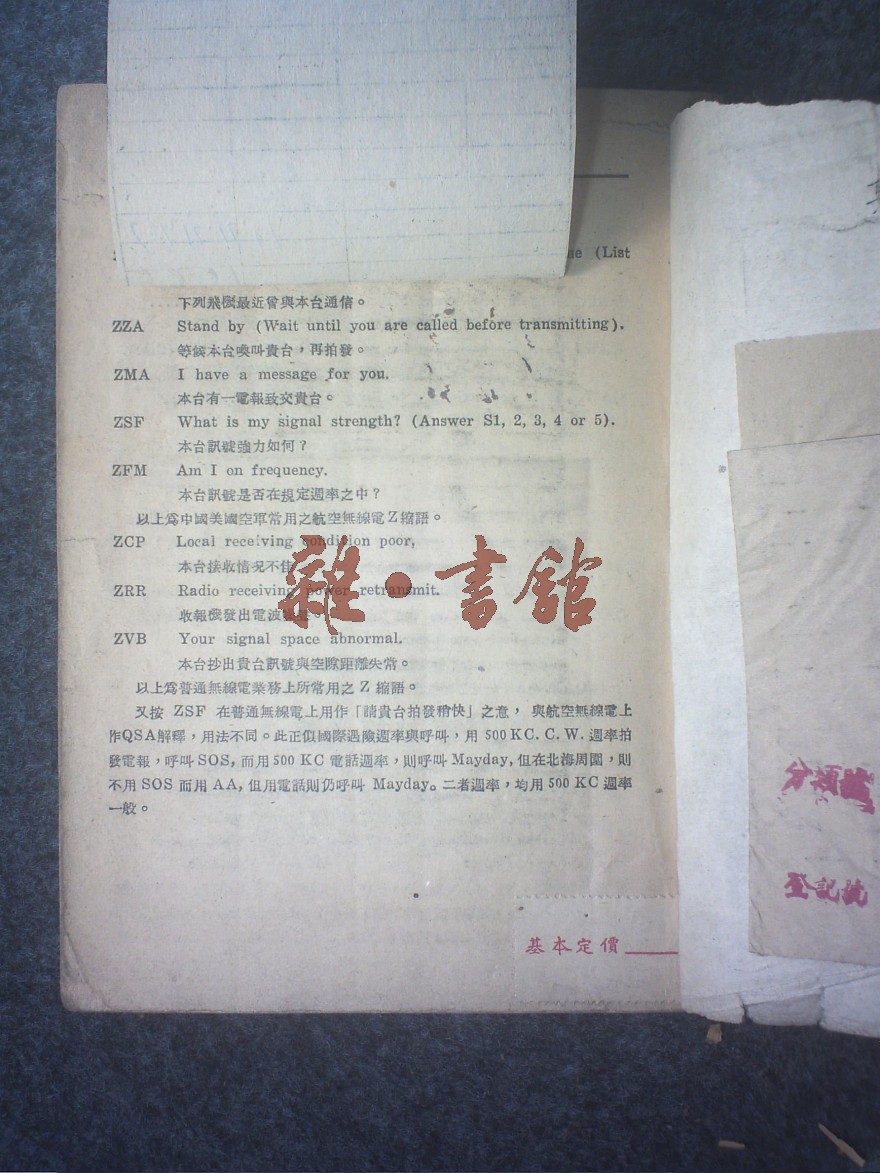 ne (List
下列飛機最近曾與本台通信。
ZZA Stand by (Wait until you are called before transmitting).
等候本台喚叫貴台，再拍發。
ZMA I have a message for you.
本台有一電報致交貴台。
ZSF What is my signal strength? (Answer S1, 2, 3, 4 or 5).
本台訊號強力如何？
ZFM Am I on frequency.
本台訊號是否在規定週率之中？
以上爲中國美國空軍常用之航空無線電Z縮語。
ZCP Local receiving condition poor,
本台接收情况不佳
ZRR Radio receiving power retransmit.
收報機發出電波
ZVB Your signal space abnormal.
本台抄出貴台訊號與空隙距離失常。
以上爲普通無線電業務上所常用之 Z 縮語。
又按 ZSF 在普通無線電上用作「請貴台拍發稍快」之意，與航空無線電上
作QSA解釋，用法不同。此正似國際遇險週率與呼叫，用 500 KC. C. W. 週率拍
發電報，呼叫 SOS, 而用 500 KC 電話週率，則呼叫 Mayday, 但在北海周圍，則
不用 SOS 而用 AA, 但用電話則仍呼叫 Mayday。二者週率，均用 500 KC 週率
一般。
雜·書舘
基本定價
分類號
登記號